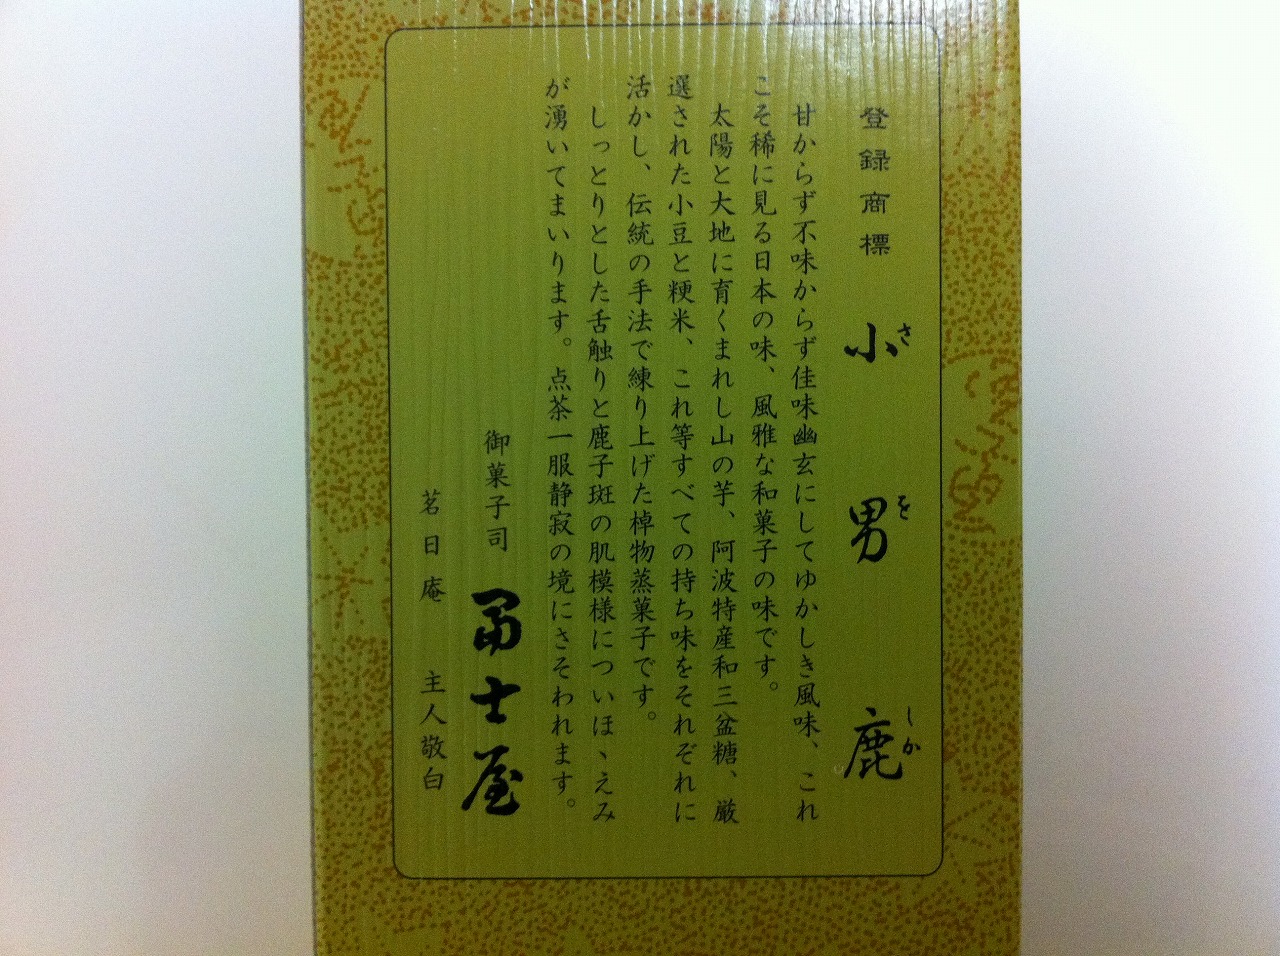 登録商標 小男鹿
さ を しか
甘からず不味からず佳味幽玄にしてゆかしき風味、これ
こそ稀に見る日本の味、風雅な和菓子の味です。
太陽と大地に育くまれし山の芋、阿波特産和三盆糖、厳
選された小豆と粳米、これ等すべての持ち味をそれぞれに
活かし、伝統の手法で練り上げた棹物蒸菓子です。
しっとりとした舌触りと鹿子斑の肌模様についほゝえみ
が湧いてまいります。点茶一服静寂の境にさそわれます。
御菓子司 冨士屋
茗日庵 主人敬白